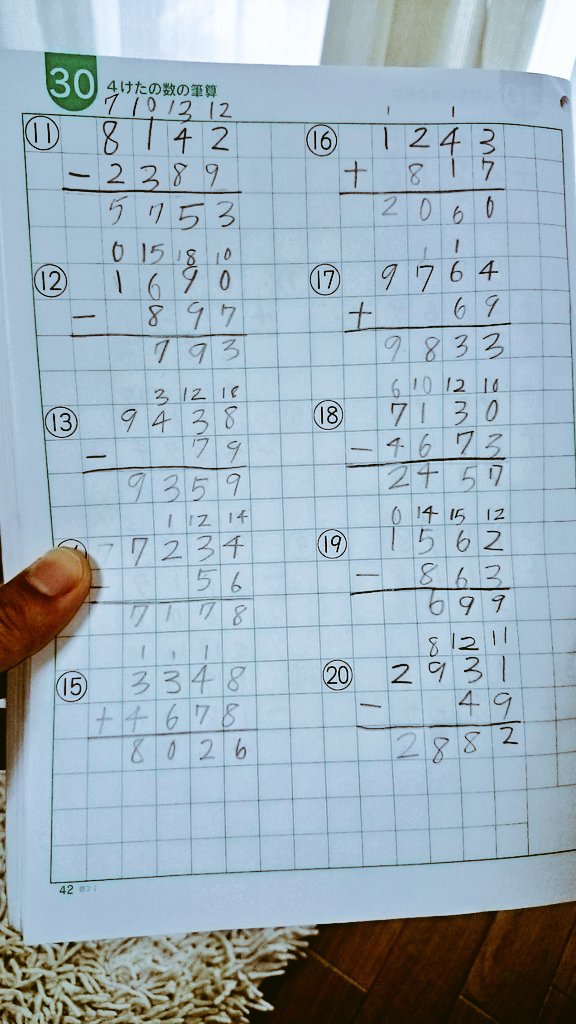 30 4けたの数の筆算
7 10 13 12
⑪ 8142
- 2389
5753
0 15 18 10
⑫ 1690
- 897
793
3 12 18
⑬ 9438
- 79
9359
1 12 14
7234
56
7178
1 1 1
⑮ 3348
+ 4678
8026
1 1
⑯ 1243
+ 817
2060
1 1
⑰ 9764
+ 69
9833
6 10 12 10
⑱ 7130
- 4673
2457
0 14 15 12
⑲ 1562
- 863
699
8 12 11
⑳ 2931
- 49
2882
42